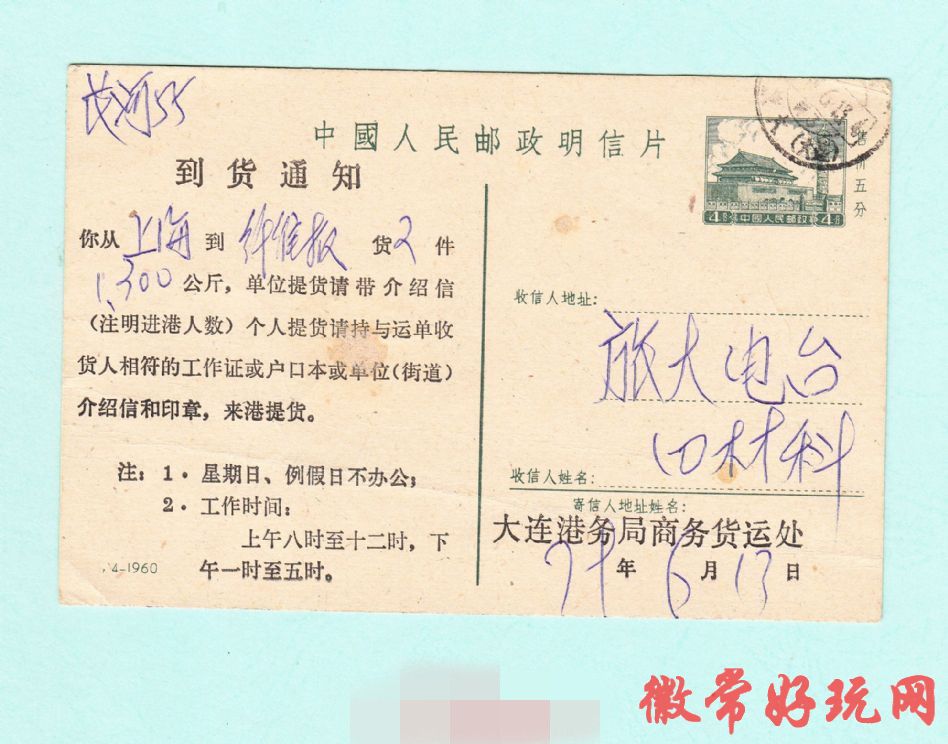 茂河55
中國人民邮政明信片
售价五分
4 中國人民邮政 4
到货通知
你从上海到 货2件
1,300公斤，单位提货请带介绍信
（注明进港人数）个人提货请持与运单收
货人相符的工作证或户口本或单位（街道）
介绍信和印章，来港提货。
注：1·星期日、例假日不办公；
2·工作时间：
上午八时至十二时，下
午一时至五时。
4-1960
收信人地址：
旅大电台
口材科
收信人姓名：
寄信人地址姓名：
大连港务局商务货运处
79年6月13日
徽常好玩网